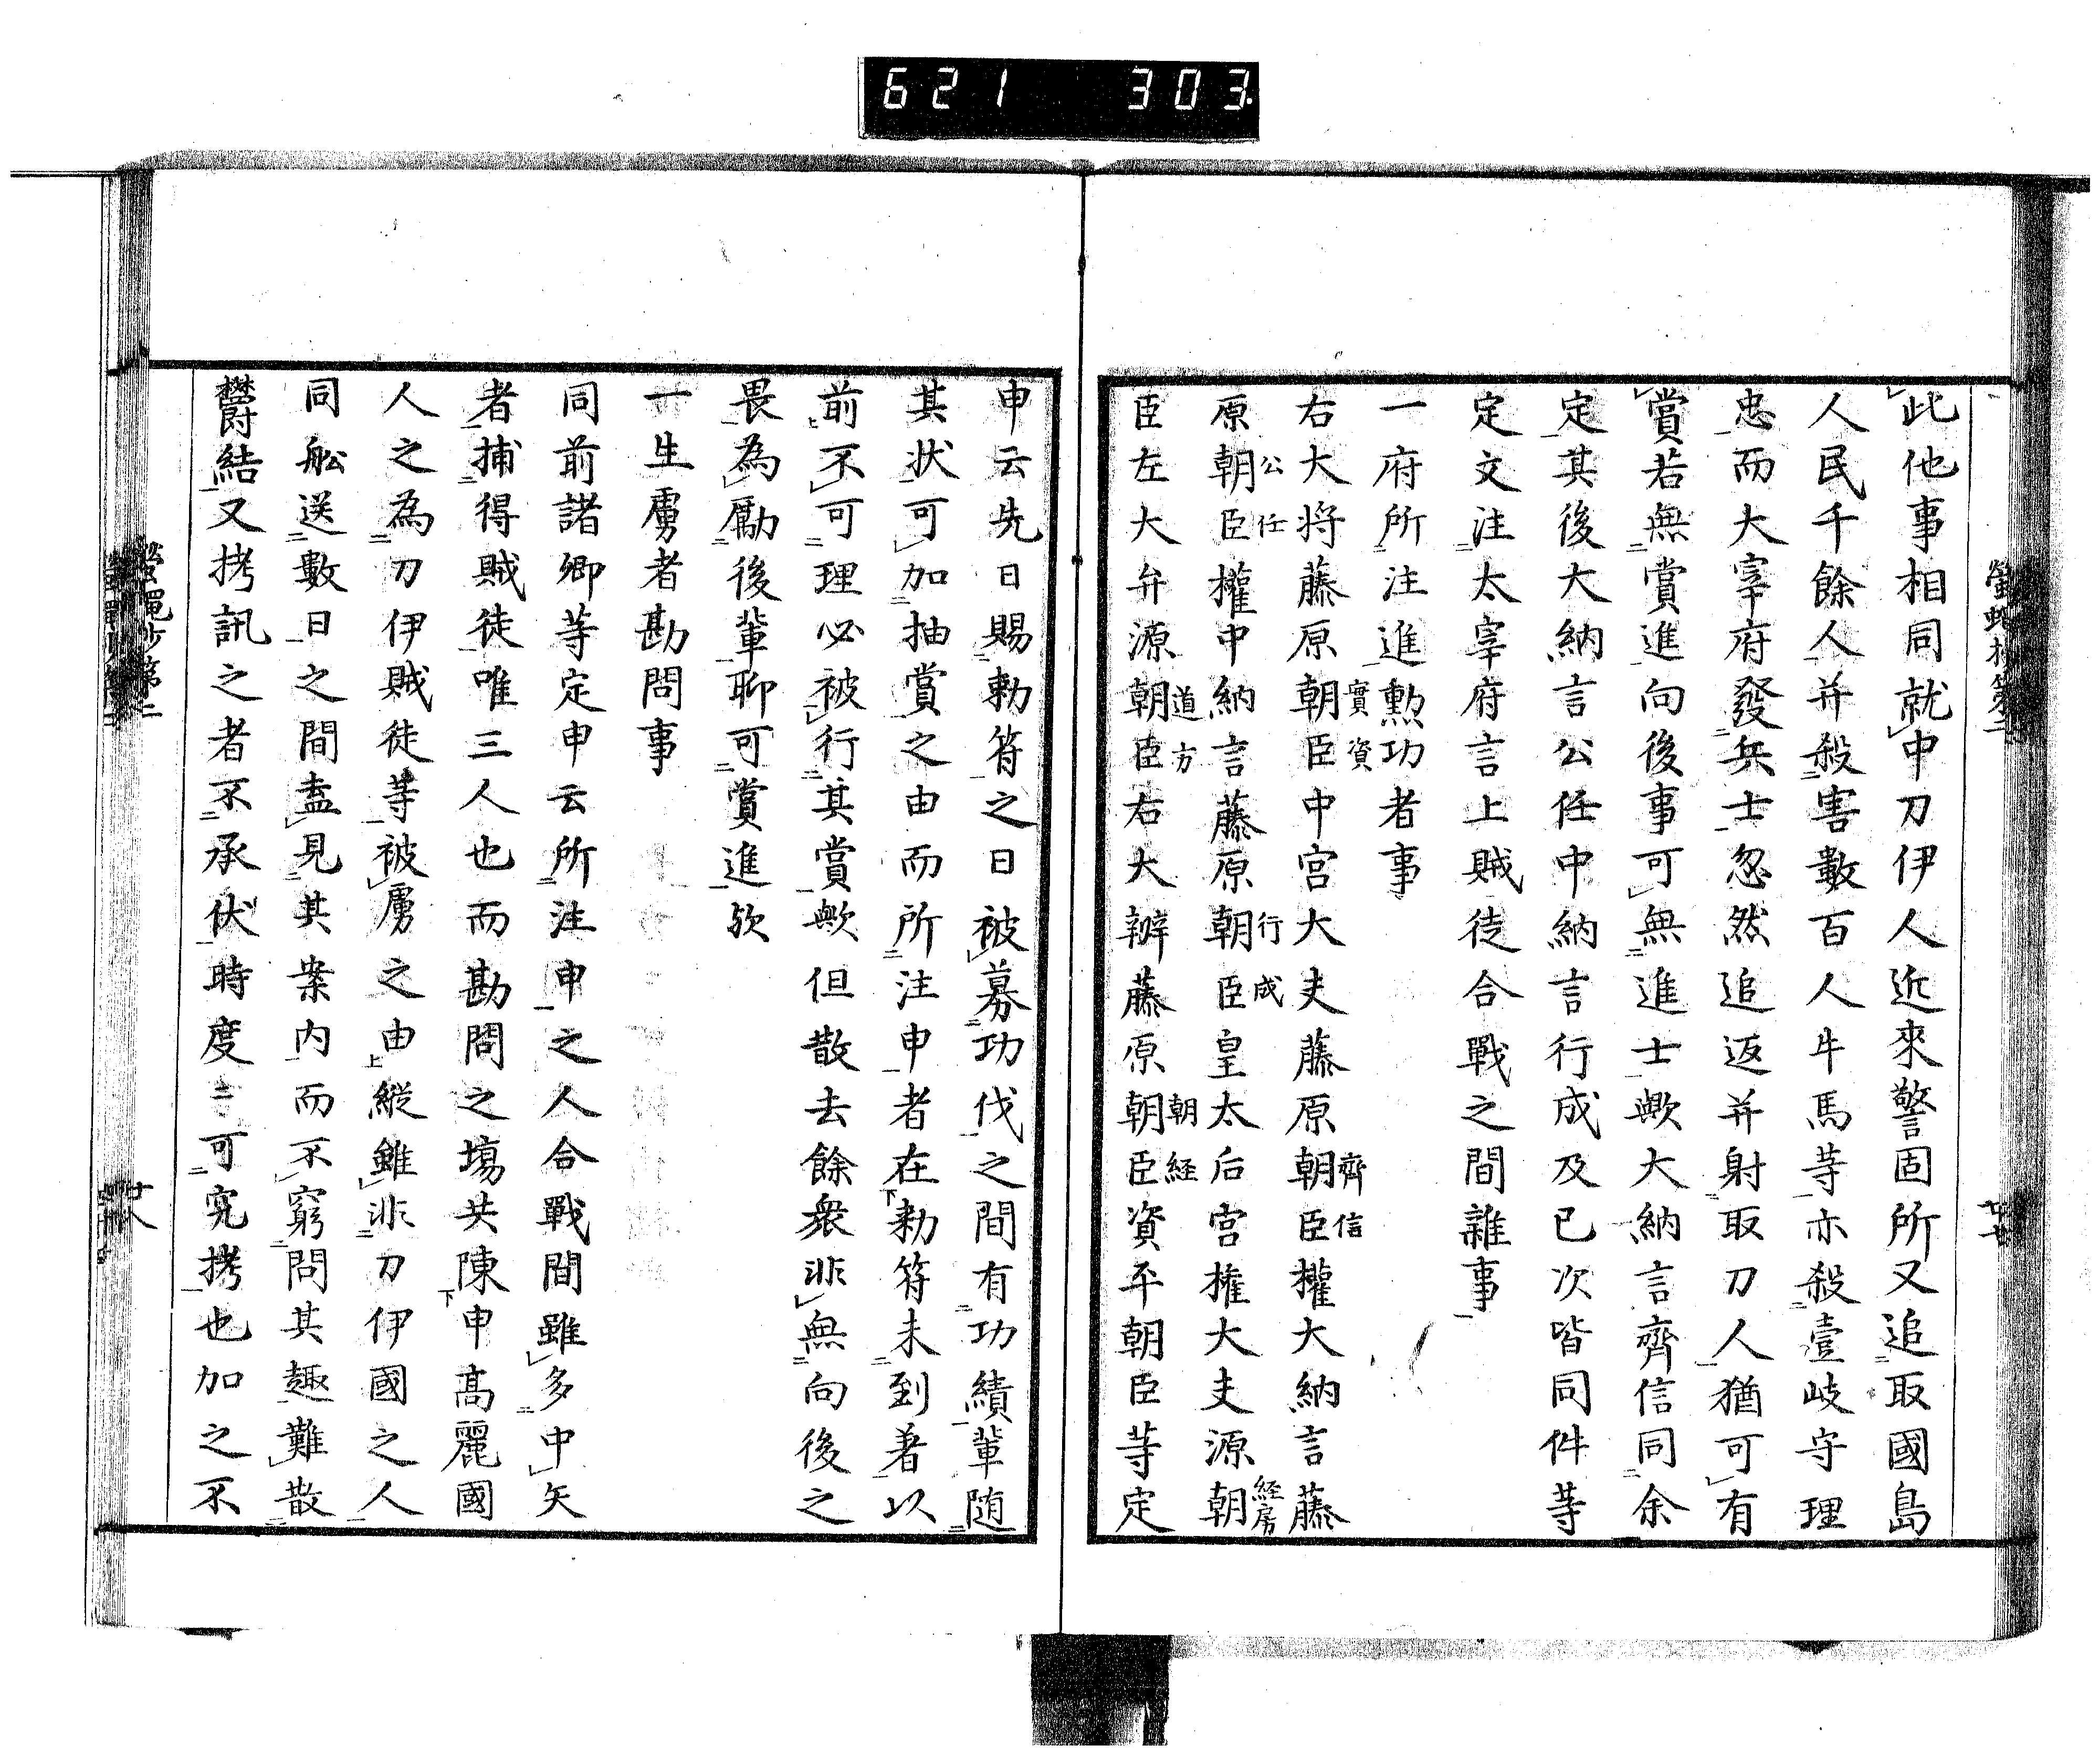 621 303.
此他事相同就中刀伊人近來警固所又追取國島
人民千餘人并殺害數百人牛馬等亦殺壹岐守理
忠而大宰府發兵士忽然追返并射取刀人猶可有
賞若無賞進向後事可無進士歟大納言齊信同余
定其後大納言公任中納言行成及已次皆同件等
定文注太宰府言上賊徒合戰之間雜事
一府所注進勲功者事
右大將藤原朝臣實資中宮大夫藤原朝臣齊信權大納言藤
原朝臣公任權中納言藤原朝臣行成皇太后宮権大夫源朝
臣経房左大弁源朝臣道方右大辨藤原朝臣朝経資平朝臣等定
申云先日賜勅符之日被募功伐之間有功績輩随
其状可加抽賞之由而所注申者在勅符未到著以
前不可理必被行其賞歟但散去餘衆非無向後之
畏為勵後輩聊可賞進欤
一生虜者勘問事
同前諸卿等定申云所注申之人合戰間雖多中矢
者捕得賊徒唯三人也而勘問之塲共陳申髙麗國
人之為刀伊賊徒等被虜之由縦雖非刀伊國之人
同舩送數日之間盍見其案内而不窮問其趣難散
欝結又拷訊之者不承伏時度〻可究拷也加之不
廿八